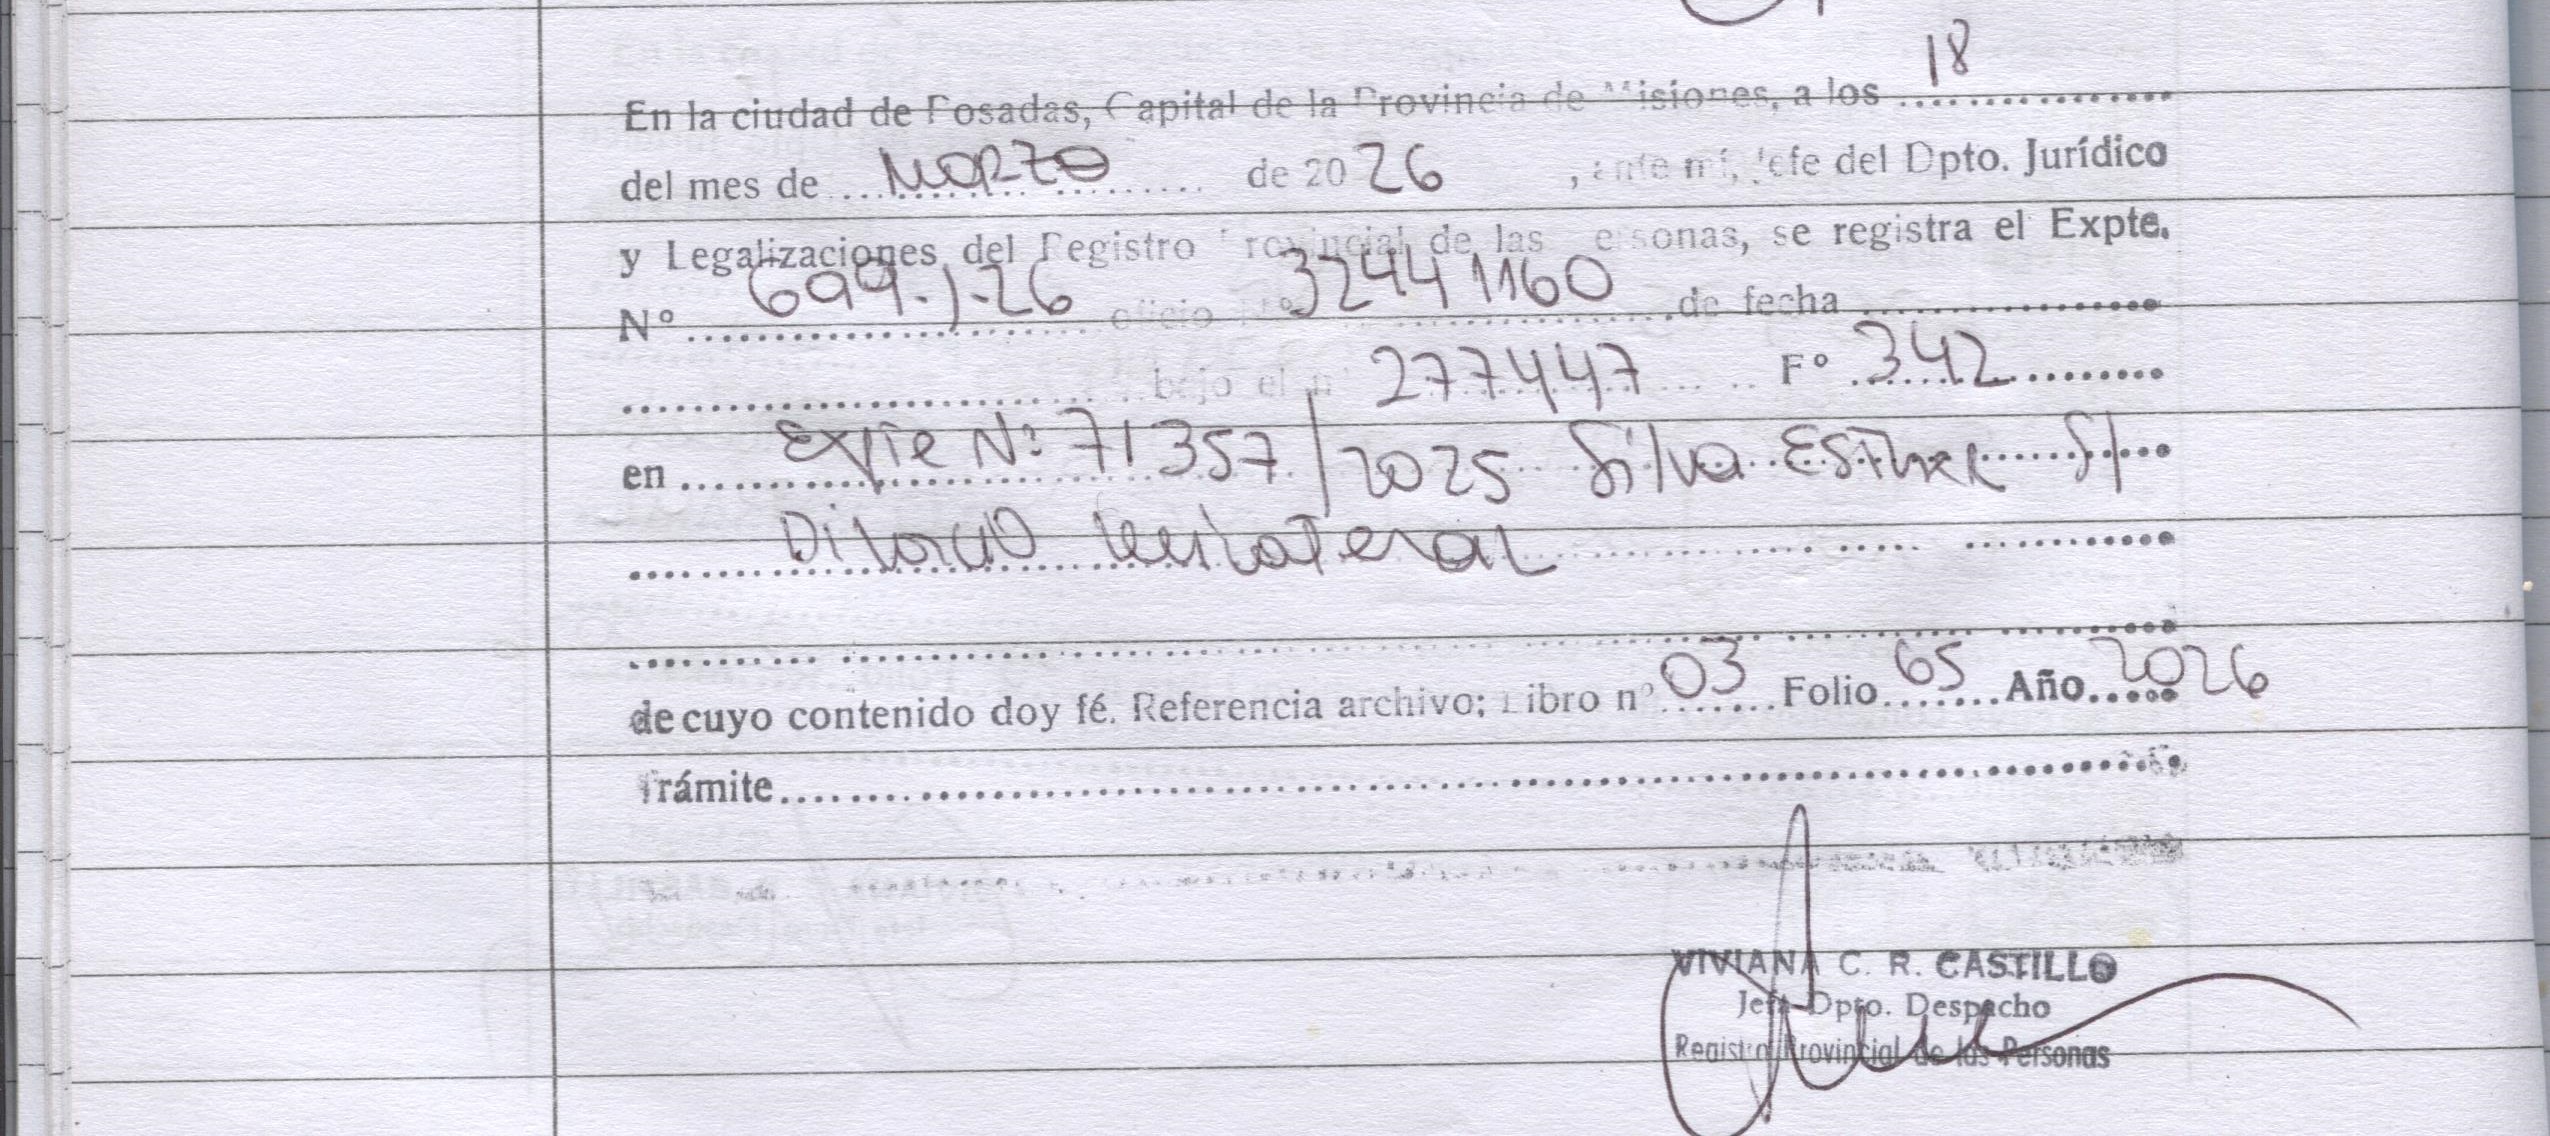 En la ciudad de Posadas, Capital de la Provincia de Misiones, a los 18
del mes de Marzo de 2026, ante mí, Jefe del Dpto. Jurídico
y Legalizaciones del Registro Provincial de las Personas, se registra el Expte.
N° 699-J-26 oficio N° 32441160 de fecha
bajo el n° 277447 F° 342
en Expte N°: 71357/2025 Silva Esther S/
Divorcio Unilateral
de cuyo contenido doy fé. Referencia archivo; Libro n° 03 Folio 65 Año 2026
Trámite
VIVIANA C. R. CASTILLO
Jefa Dpto. Despacho
Registro Provincial de las Personas